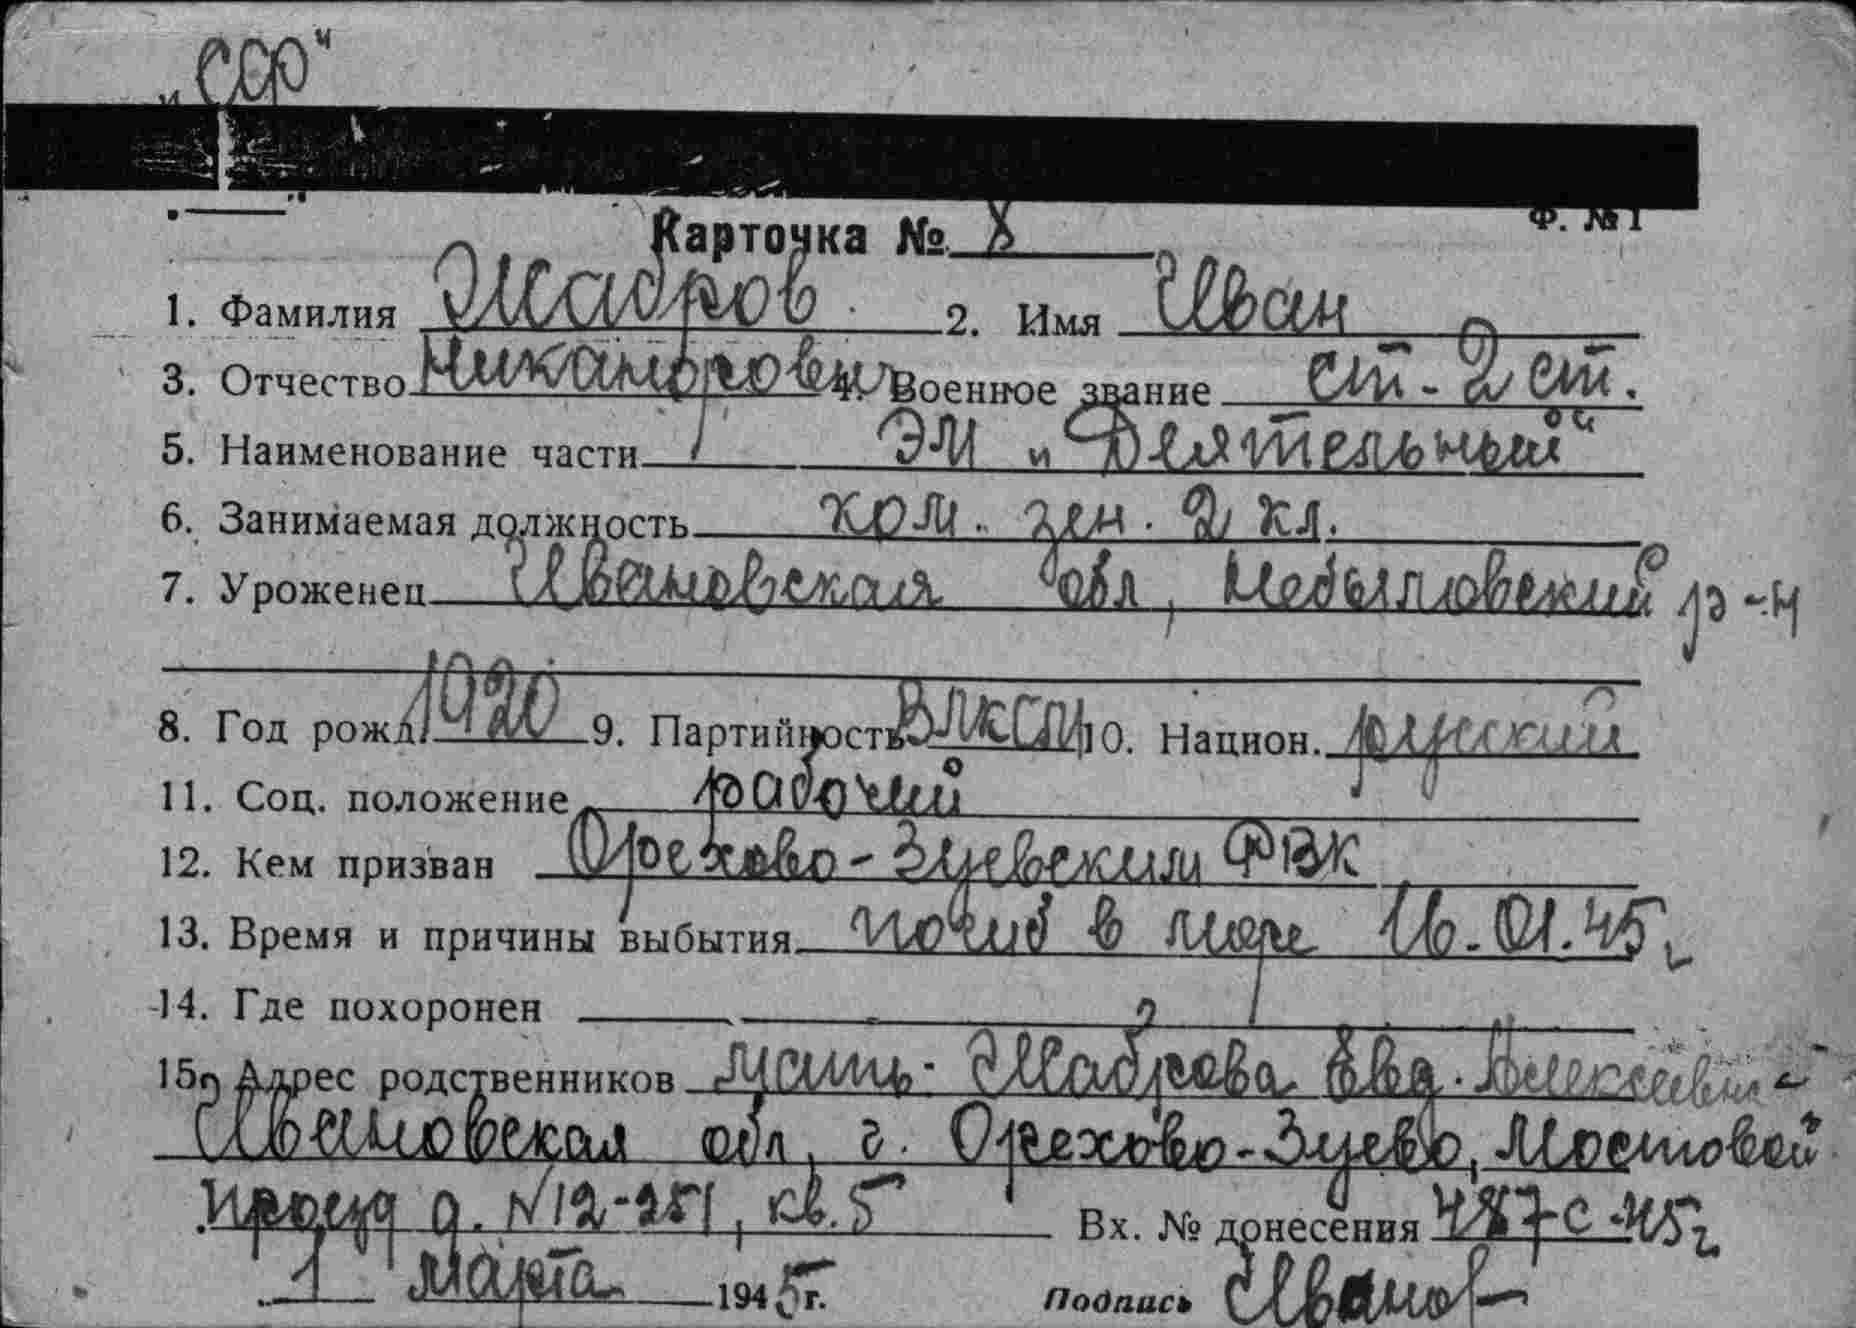 „СФ"
Ф. №1
Карточка № 8
1. Фамилия Шабров 2. Имя Иван
3. Отчество Никанорович 4. Военное звание ст. 2 ст.
5. Наименование части ЭМ „Деятельный"
6. Занимаемая должность ком. зен. 2 кл.
7. Уроженец Ивановская обл, Небыловский р-н
8. Год рожд. 1920 9. Партийность ВЛКСМ 10. Национ. русский
11. Соц. положение рабочий
12. Кем призван Орехово-Зуевским РВК
13. Время и причины выбытия погиб в море 16.01.45г
14. Где похоронен
15. Адрес родственников мать - Шаброва Евд. Алексеевна -
Ивановская обл, г. Орехово-Зуево, Мостовой
проезд д. №12-251, кв. 5 Вх. № донесения 487с-45г
1 марта 1945 г. Подпись Иванов